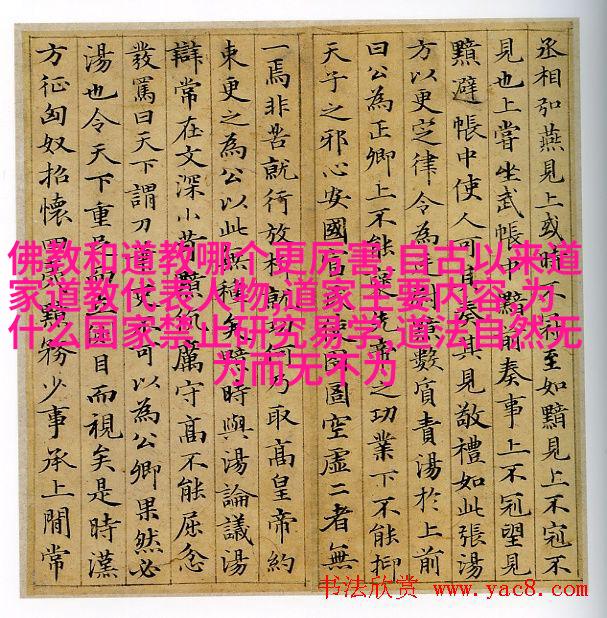 丞相弘燕見上或時不冠至如黯見上不冠不
見也上嘗坐武帳中黯前奏事上不冠望見
黯避帳中使人可其奏其見敬禮如此張湯
方以更定律令為廷尉黯數質責湯於上前
曰公為正卿上不能褒先帝之功業下不能抑
天子之邪心安國富民使囹圄空虛二者無
一焉非苦就行放析就功何乃取高皇帝約
束更之為公以此無種矣黯時與湯論議湯
辯常在文深小苛黯伉厲守高不能屈忿
發罵曰天下謂刀筆吏不可以為公卿果然必
湯也令天下重足而立側目而視矣是時漢
方征匈奴招懷四夷黯務少事承上閒常
佛教和道教哪个更厉害,自古以来道
家道教代表人物,道家主要内容,为
什么国家禁止研究易学,道法自然无
为而无不为
书法欣赏 www.yac8.com